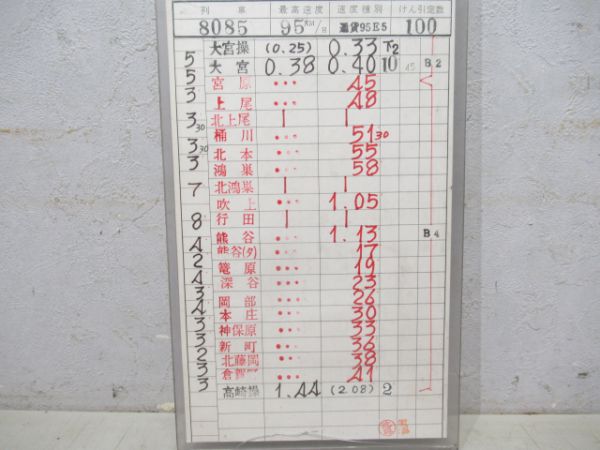 列車 最高速度 速度種別 けん引定数
8085 95KM/H 通貨95E5 100
大宮操 (0.25) 0.33 下2
5 大宮 0.38 0.40 10 45 B2
5 宮原 ••• 45
3 上尾 ••• 48
北上尾 | |
3 30 桶川 ••• 51 30
3 30 北本 ••• 55
3 鴻巣 ••• 58
北鴻巣 | |
7 吹上 ••• 1.05
行田 | |
8 熊谷 ••• 1.13 B4
4 熊谷(タ) ••• 17
2 篭原 ••• 19
4 深谷 ••• 23
3 岡部 ••• 26
4 本庄 ••• 30
3 神保原 ••• 33
3 新町 ••• 36
2 北藤岡 ••• 38
3 倉賀野 ••• 41
3 高崎操 1.44 (2.08) 2